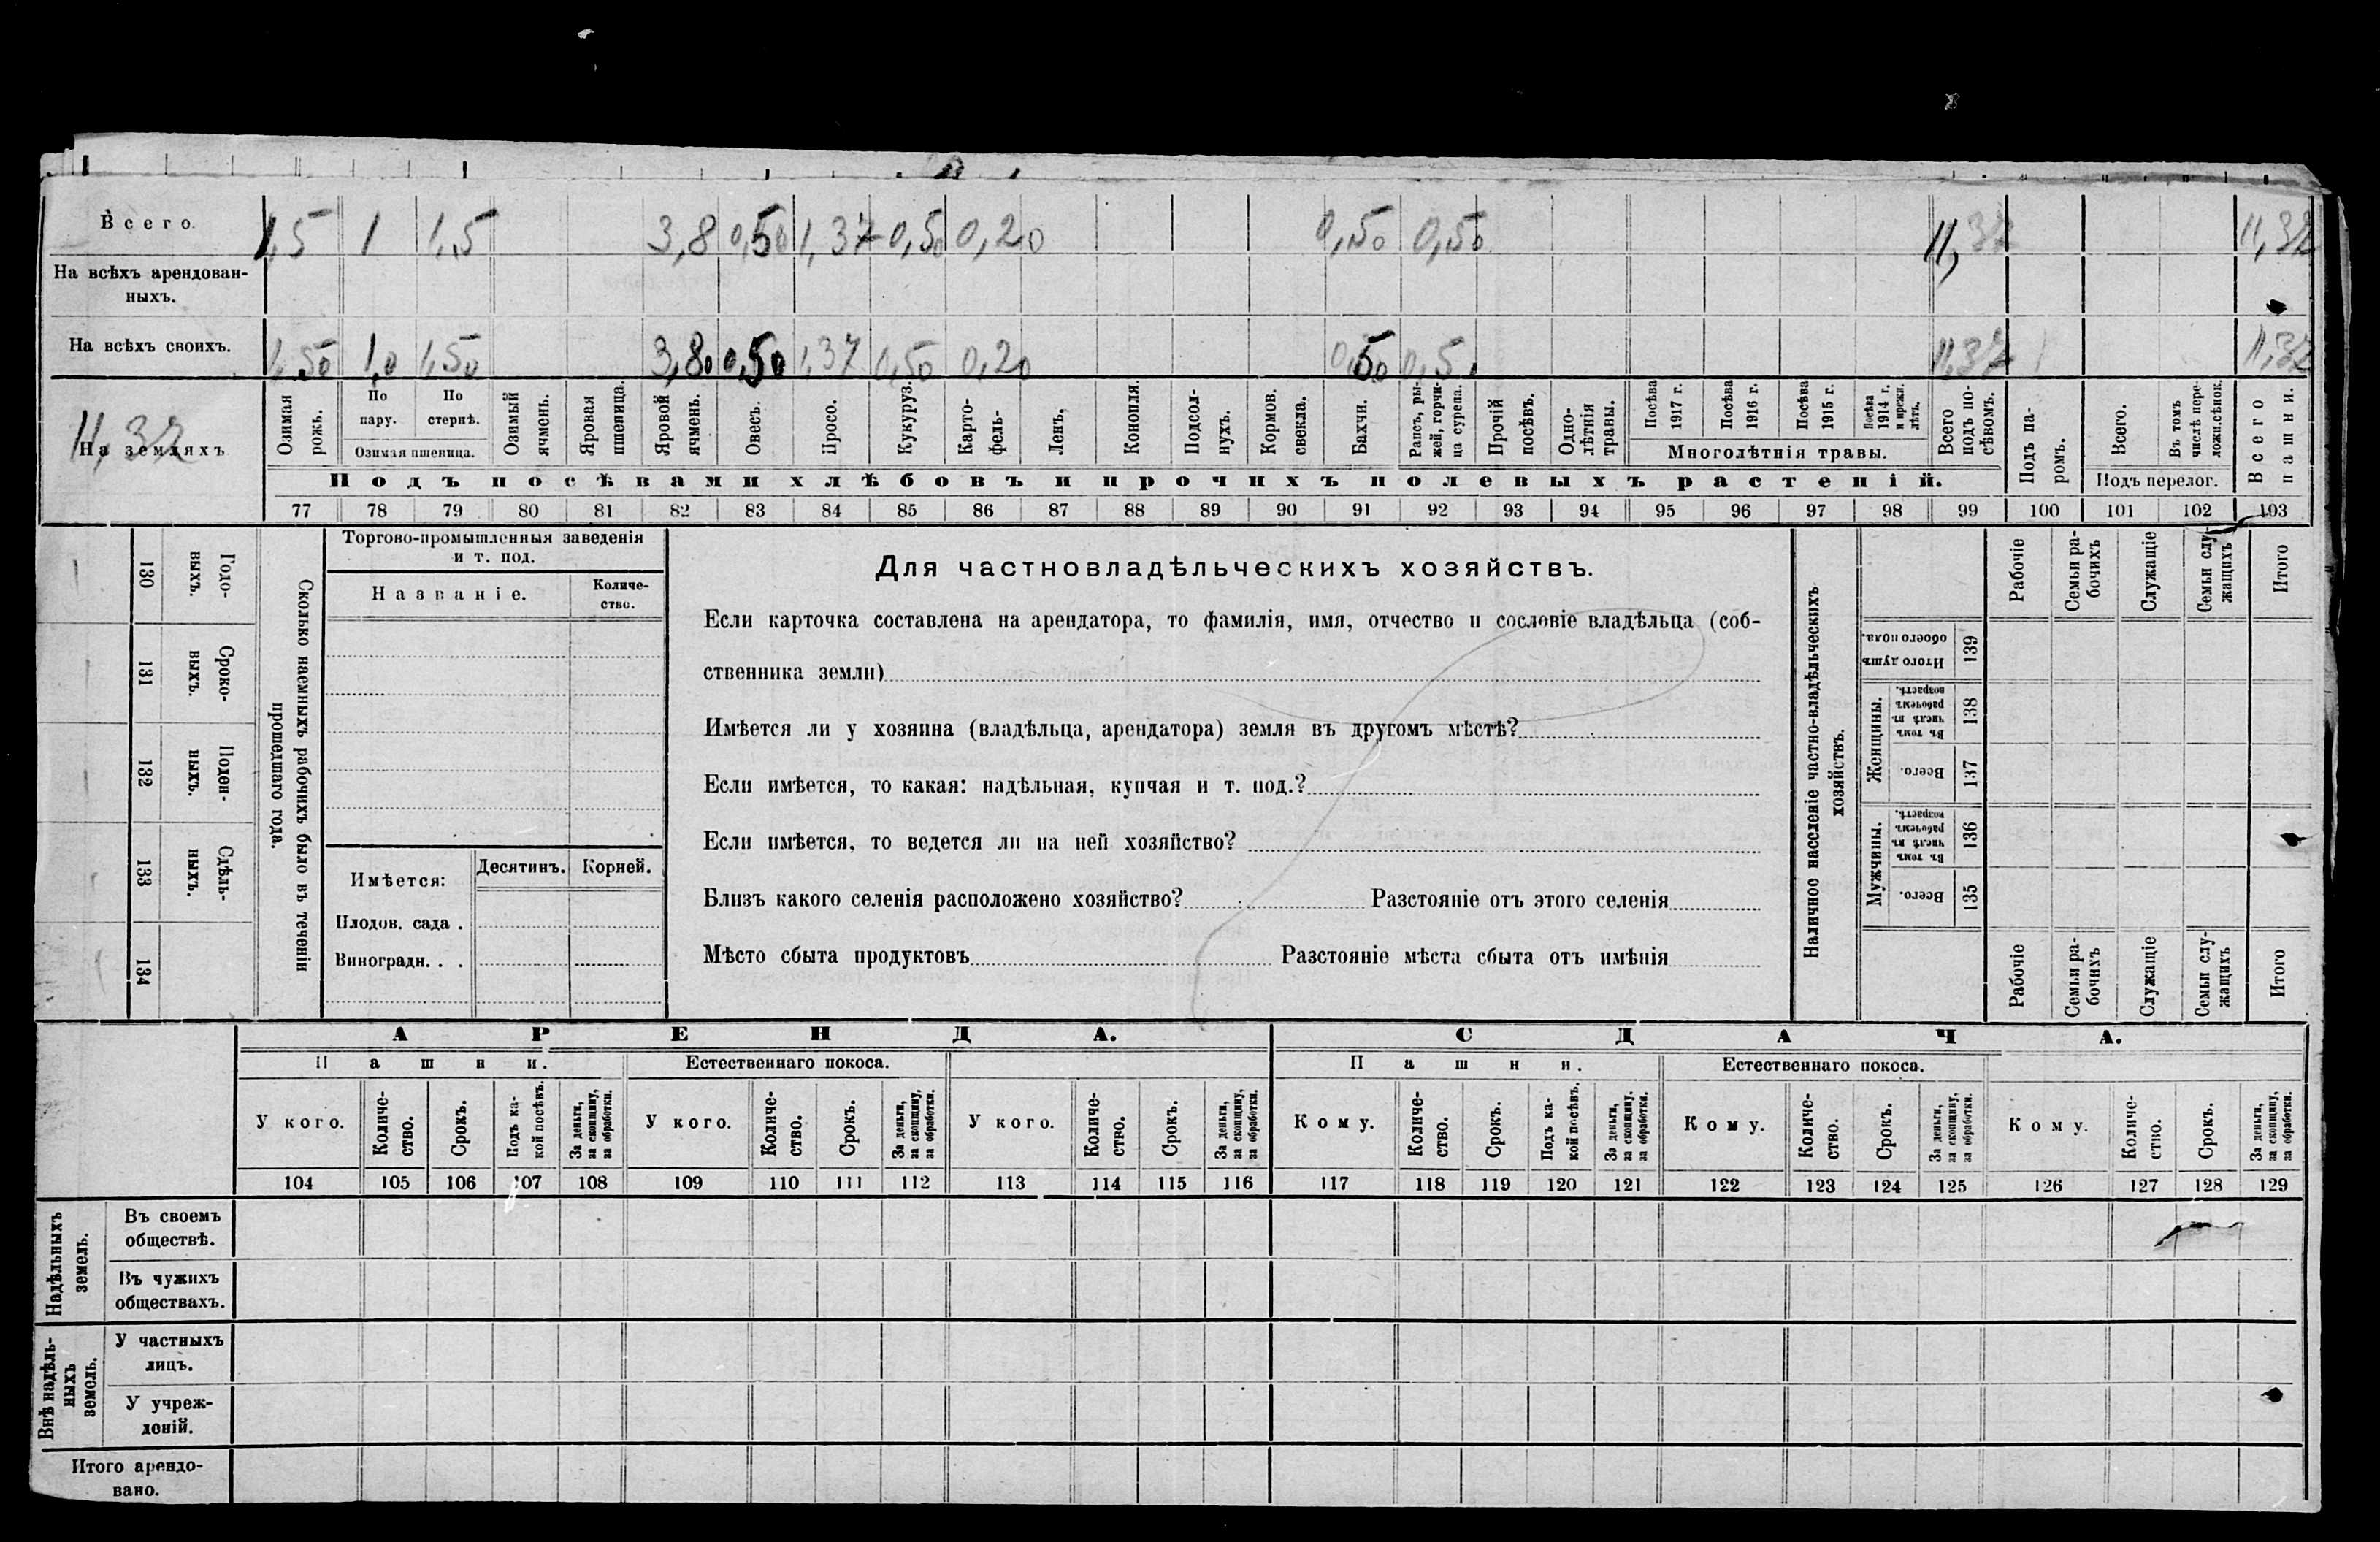 Всего 1,5 1 1,5 3,8 0,50 1,37 0,50 0,20 0,50 0,50 11,37 11,37
На всѣхъ арендован-
ныхъ.
На всѣхъ своихъ. 1,50 1,0 1,50 3,80 0,50 1,37 0,50 0,20 0,50 0,5 11,37 11,37
11,37
На земляхъ
Озимая рожь.
По пару.
По стернѣ.
Озимая пшеница.
Озимый ячмень.
Яровая пшеница.
Яровой ячмень.
Овесъ.
Просо.
Кукуруз.
Карто-
фель-
Ленъ.
Конопля.
Подсол-
нухъ.
Кормов.
свекла.
Бахчи.
Рапсъ, ры-
жей, горчи-
ца сурепа.
Прочій
посѣвъ.
Одно-
лѣтнія
травы.
Посѣва
1917 г.
Посѣва
1916 г.
Посѣва
1915 г.
Посѣва
1914 г.
и прежн.
лѣтъ.
Многолѣтнія травы.
Всего
подъ по-
сѣвомъ.
Подъ па-
ромъ.
Всего.
Въ томъ
числѣ пере-
ложн.сѣнок.
Подъ перелог.
Всего
пашни.
Подъ посѣвами хлѣбовъ и прочихъ полевыхъ растеній.
77 78 79 80 81 82 83 84 85 86 87 88 89 90 91 92 93 94 95 96 97 98 99 100 101 102 103
Годо-
выхъ.
130
Сроко-
выхъ.
131
Поден-
ныхъ.
132
Сдѣль-
ныхъ.
133
134
Сколько наемныхъ рабочихъ было въ теченіи
прошедшаго года.
Торгово-промышленныя заведенія
и т. под.
Названіе.
Количе-
ство.
Имѣется:
Десятинъ. Корней.
Плодов. сада .
Виноградн. . .
Для частновладѣльческихъ хозяйствъ.
Если карточка составлена на арендатора, то фамилія, имя, отчество и сословіе владѣльца (соб-
ственника земли)
Имѣется ли у хозяина (владѣльца, арендатора) земля въ другомъ мѣстѣ?
Если имѣется, то какая: надѣльная, купчая и т. под.?
Если имѣется, то ведется ли на ней хозяйство?
Близъ какого селенія расположено хозяйство? Разстояніе отъ этого селенія
Мѣсто сбыта продуктовъ Разстояніе мѣста сбыта отъ имѣнія
Наличное населеніе частно-владѣльческихъ
хозяйствъ.
Рабочіе
Семьи ра-
бочихъ
Служащіе
Семьи слу-
жащихъ
Итого
Итого душъ
обоего пола.
139
Женщины.
Въ томъ
числѣ въ
рабочемъ
возрастѣ.
138
Всего.
137
Мужчины.
Въ томъ
числѣ въ
рабочемъ
возрастѣ.
136
Всего.
135
Рабочіе
Семьи ра-
бочихъ
Служащіе
Семьи слу-
жащихъ
Итого
АРЕНДА. СДАЧА.
Пашни. Естественнаго покоса. Пашни. Естественнаго покоса.
У кого.
Количе-
ство.
Срокъ.
Подъ ка-
кой посѣвъ.
За деньги,
за скопщину,
за обработки.
У кого.
Количе-
ство.
Срокъ.
За деньги,
за скопщину,
за обработки.
У кого.
Количе-
ство.
Срокъ.
За деньги,
за скопщину,
за обработки.
Кому.
Количе-
ство.
Срокъ.
Подъ ка-
кой посѣвъ.
За деньги,
за скопщину,
за обработки.
Кому.
Количе-
ство.
Срокъ.
За деньги,
за скопщину,
за обработки.
Кому.
Количе-
ство.
Срокъ.
За деньги,
за скопщину,
за обработки.
104 105 106 107 108 109 110 111 112 113 114 115 116 117 118 119 120 121 122 123 124 125 126 127 128 129
Надѣльныхъ
земель.
Въ своемъ
обществѣ.
Въ чужихъ
обществахъ.
Внѣ надѣль-
ныхъ
земель.
У частныхъ
лицъ.
У учреж-
деній.
Итого арендо-
вано.